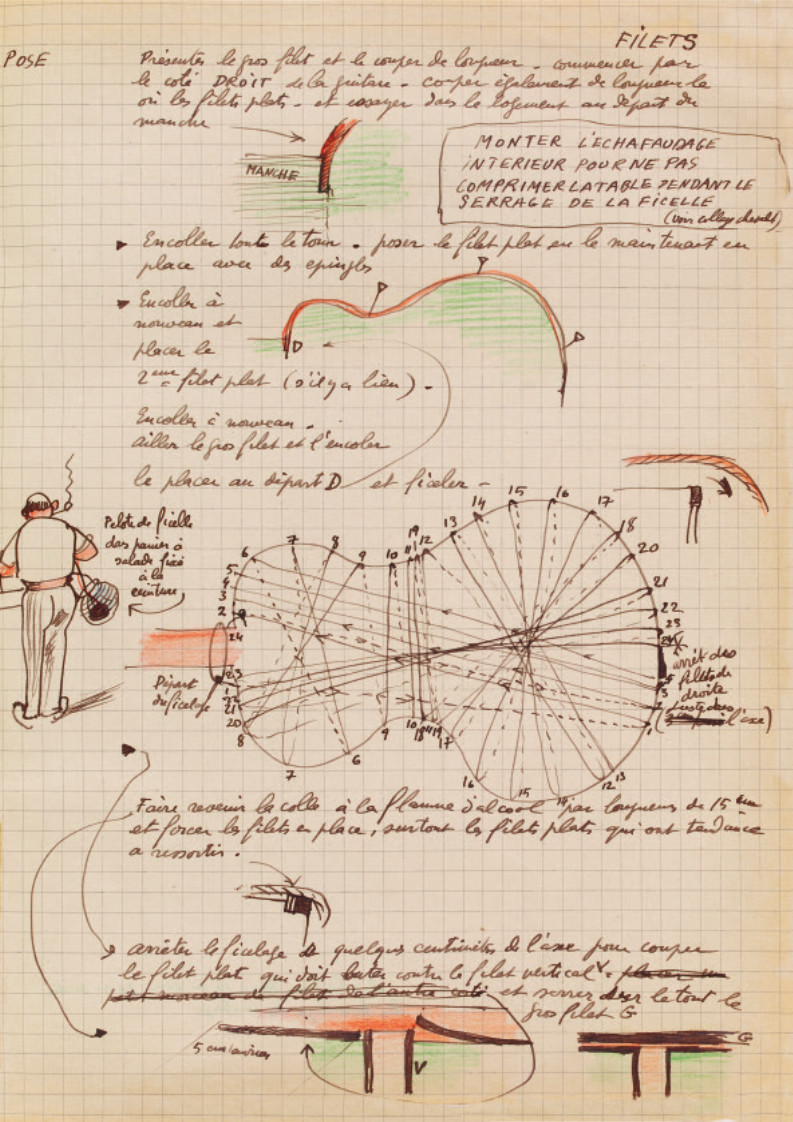 FILETS
POSE
Présenter le gros filet et le couper de longueur - commencer par
le coté DROIT de la guitare - couper également de longueur le
ou les filets plats - et essayer dans le logement au départ du
manche
MANCHE
MONTER L'ECHAFAUDAGE
INTERIEUR POUR NE PAS
COMPRIMER LA TABLE PENDANT LE
SERRAGE DE LA FICELLE
(voir collage
Encoller toute le tour - poser le filet plat en le maintenant en
place avec des epingles
Encoller à
nouveau et
placer le
2eme filet plat (s'il y a lieu) -
D
Encoller à nouveau -
ailler le gros filet et l'encoler
le placer au départ D et ficeler -
Pelote de ficelle
dans panier à
salade fixé
à la
ceinture
6 7 8 9 10 11 19 12 13 14 15 16 17 18 20 21 22 23 24
5
4
3
2
24
23
1
22
21
20
8
7 6 9 10 18 17 16 15 14 12 13
5
3
2
1
V
arrêt des
filets de
droite
(juste dans
l'axe)
Départ
du ficelage
Faire revenir la colle à la flamme d'alcool par longueurs de 15 cm
et forcer les filets en place, surtout les filets plats qui ont tendance
a ressortir.
arrêter le ficelage à quelques centimètres de l'axe pour couper
le filet plat qui doit buter contre le filet vertical V - placer un
petit morceau de filet de l'autre coté et serrer le tout le
gros filet G
5 cm environ
V
G